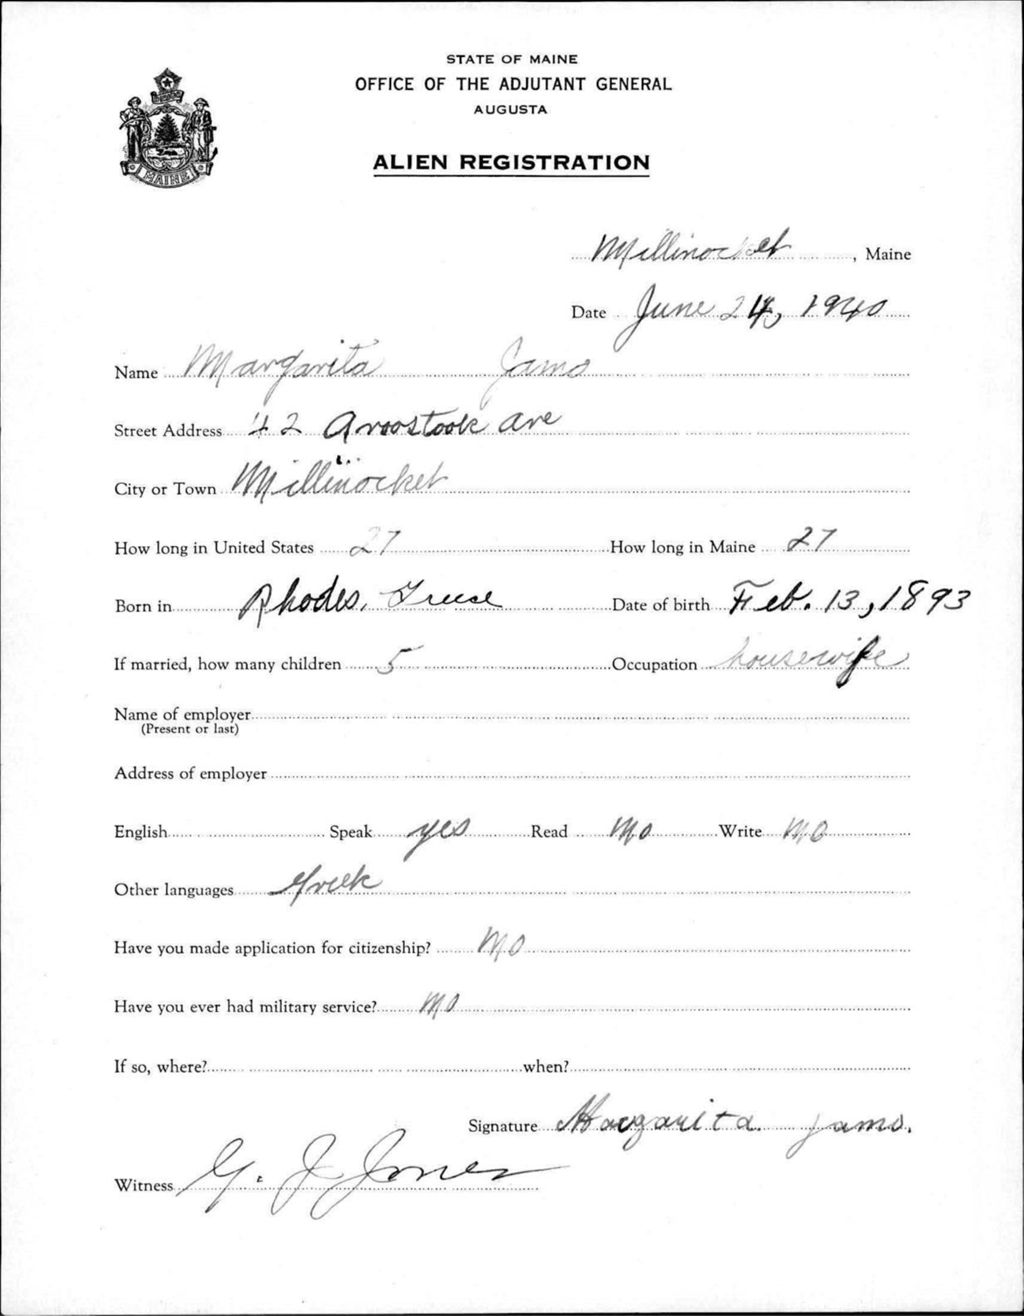 STATE OF MAINE
OFFICE OF THE ADJUTANT GENERAL
AUGUSTA
ALIEN REGISTRATION
MAINE
Millinocket, Maine
Date June 24, 1940
Name Margarita Jamo
Street Address 42 Aroostook Ave
City or Town Millinocket
How long in United States 27 How long in Maine 27
Born in Rhodes, Greece Date of birth Feb. 13, 1893
If married, how many children 5 Occupation housewife
Name of employer
(Present or last)
Address of employer
English Speak yes Read No Write No
Other languages Greek
Have you made application for citizenship? No
Have you ever had military service? No
If so, where? when?
Signature Margarita Jamo.
Witness G. J Jones